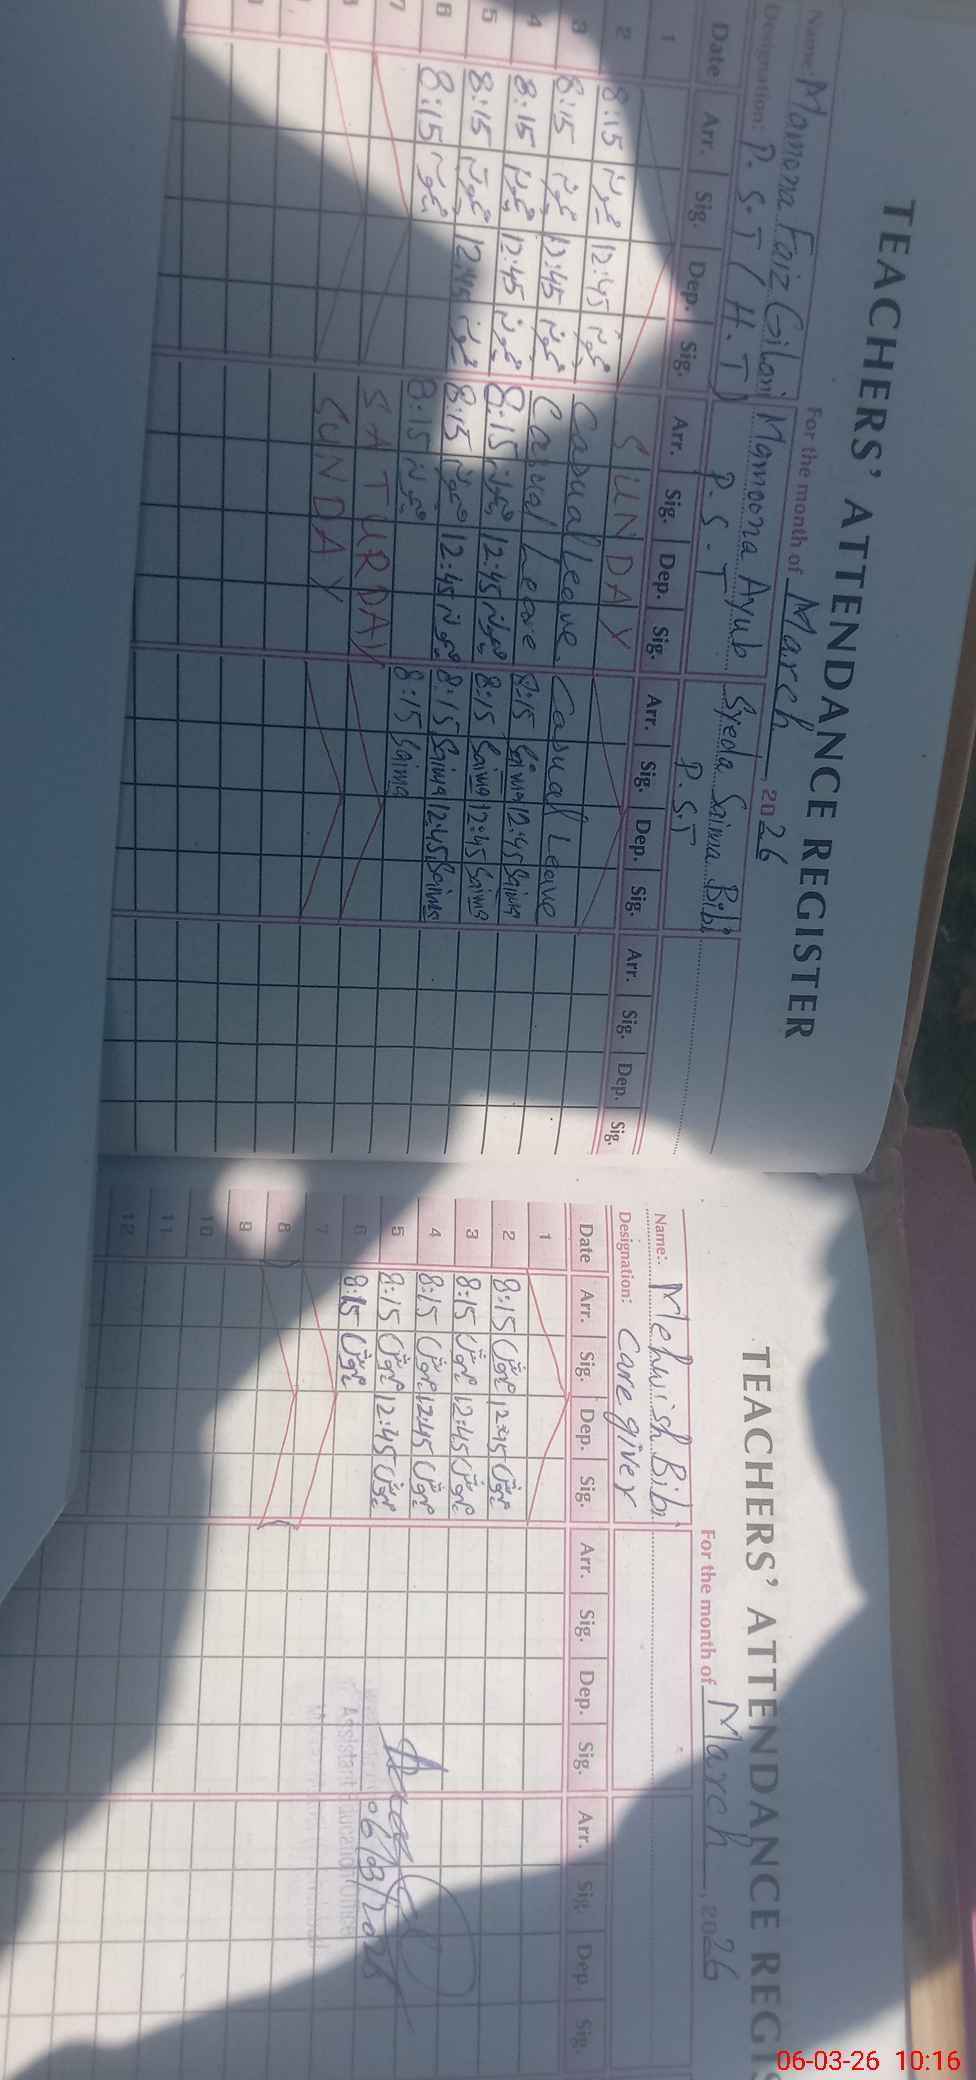 TEACHERS' ATTENDANCE REGISTER
For the month of March, 2026
Name: Mamona Faiz Gilani Mamoona Ayub Syeda Saima Bibi
Designation: P.S.T (H.T) P.S.T P.S.T
Date Arr. Sig. Dep. Sig. Arr. Sig. Dep. Sig. Arr. Sig. Dep. Sig. Arr. Sig. Dep. Sig.
1 SUNDAY
2 8:15 12:45 Casual Leave Casual Leave
3 8:15 12:45 Casual Leave 8:15 Saima 12:45 Saima
4 8:15 12:45 8:15 12:45 8:15 Saima 12:45 Saima
5 8:15 12:45 8:15 12:45 8:15 Saima 12:45 Saima
6 8:15 8:15 8:15 Saima
7 SATURDAY
SUNDAY
TEACHERS' ATTENDANCE REGIS
For the month of March, 2026
Name: Mehwish Bibi
Designation: Care giver
Date Arr. Sig. Dep. Sig. Arr. Sig. Dep. Sig. Arr. Sig. Dep. Sig.
1
2 8:15 12:45
3 8:15 12:45
4 8:15 12:45
5 8:15 12:45
6 8:15
7
8
9
10
11
12
Assistant Education Officer
06-03-26 10:16